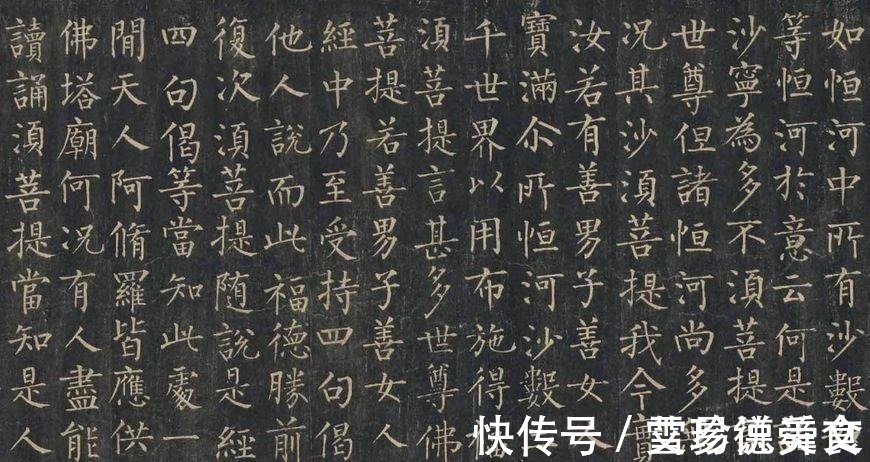 如恒河中所有沙數
等恒河於意云何是
沙寧為多不湏菩提
世尊但諸恒河尚多
况其沙湏菩提我今
汝若有善男子善女人
寶滿尒所恒河沙數
千世界以用布施得福
湏菩提言甚多世尊佛
菩提若善男子善女人
經中乃至受持四句偈
他人說而此福德勝前
復次湏菩提随說是經
四句偈等當知此處一
間天人阿脩羅皆應供
佛塔廟何况有人盡能
讀誦湏菩提當知是人
快传号 /